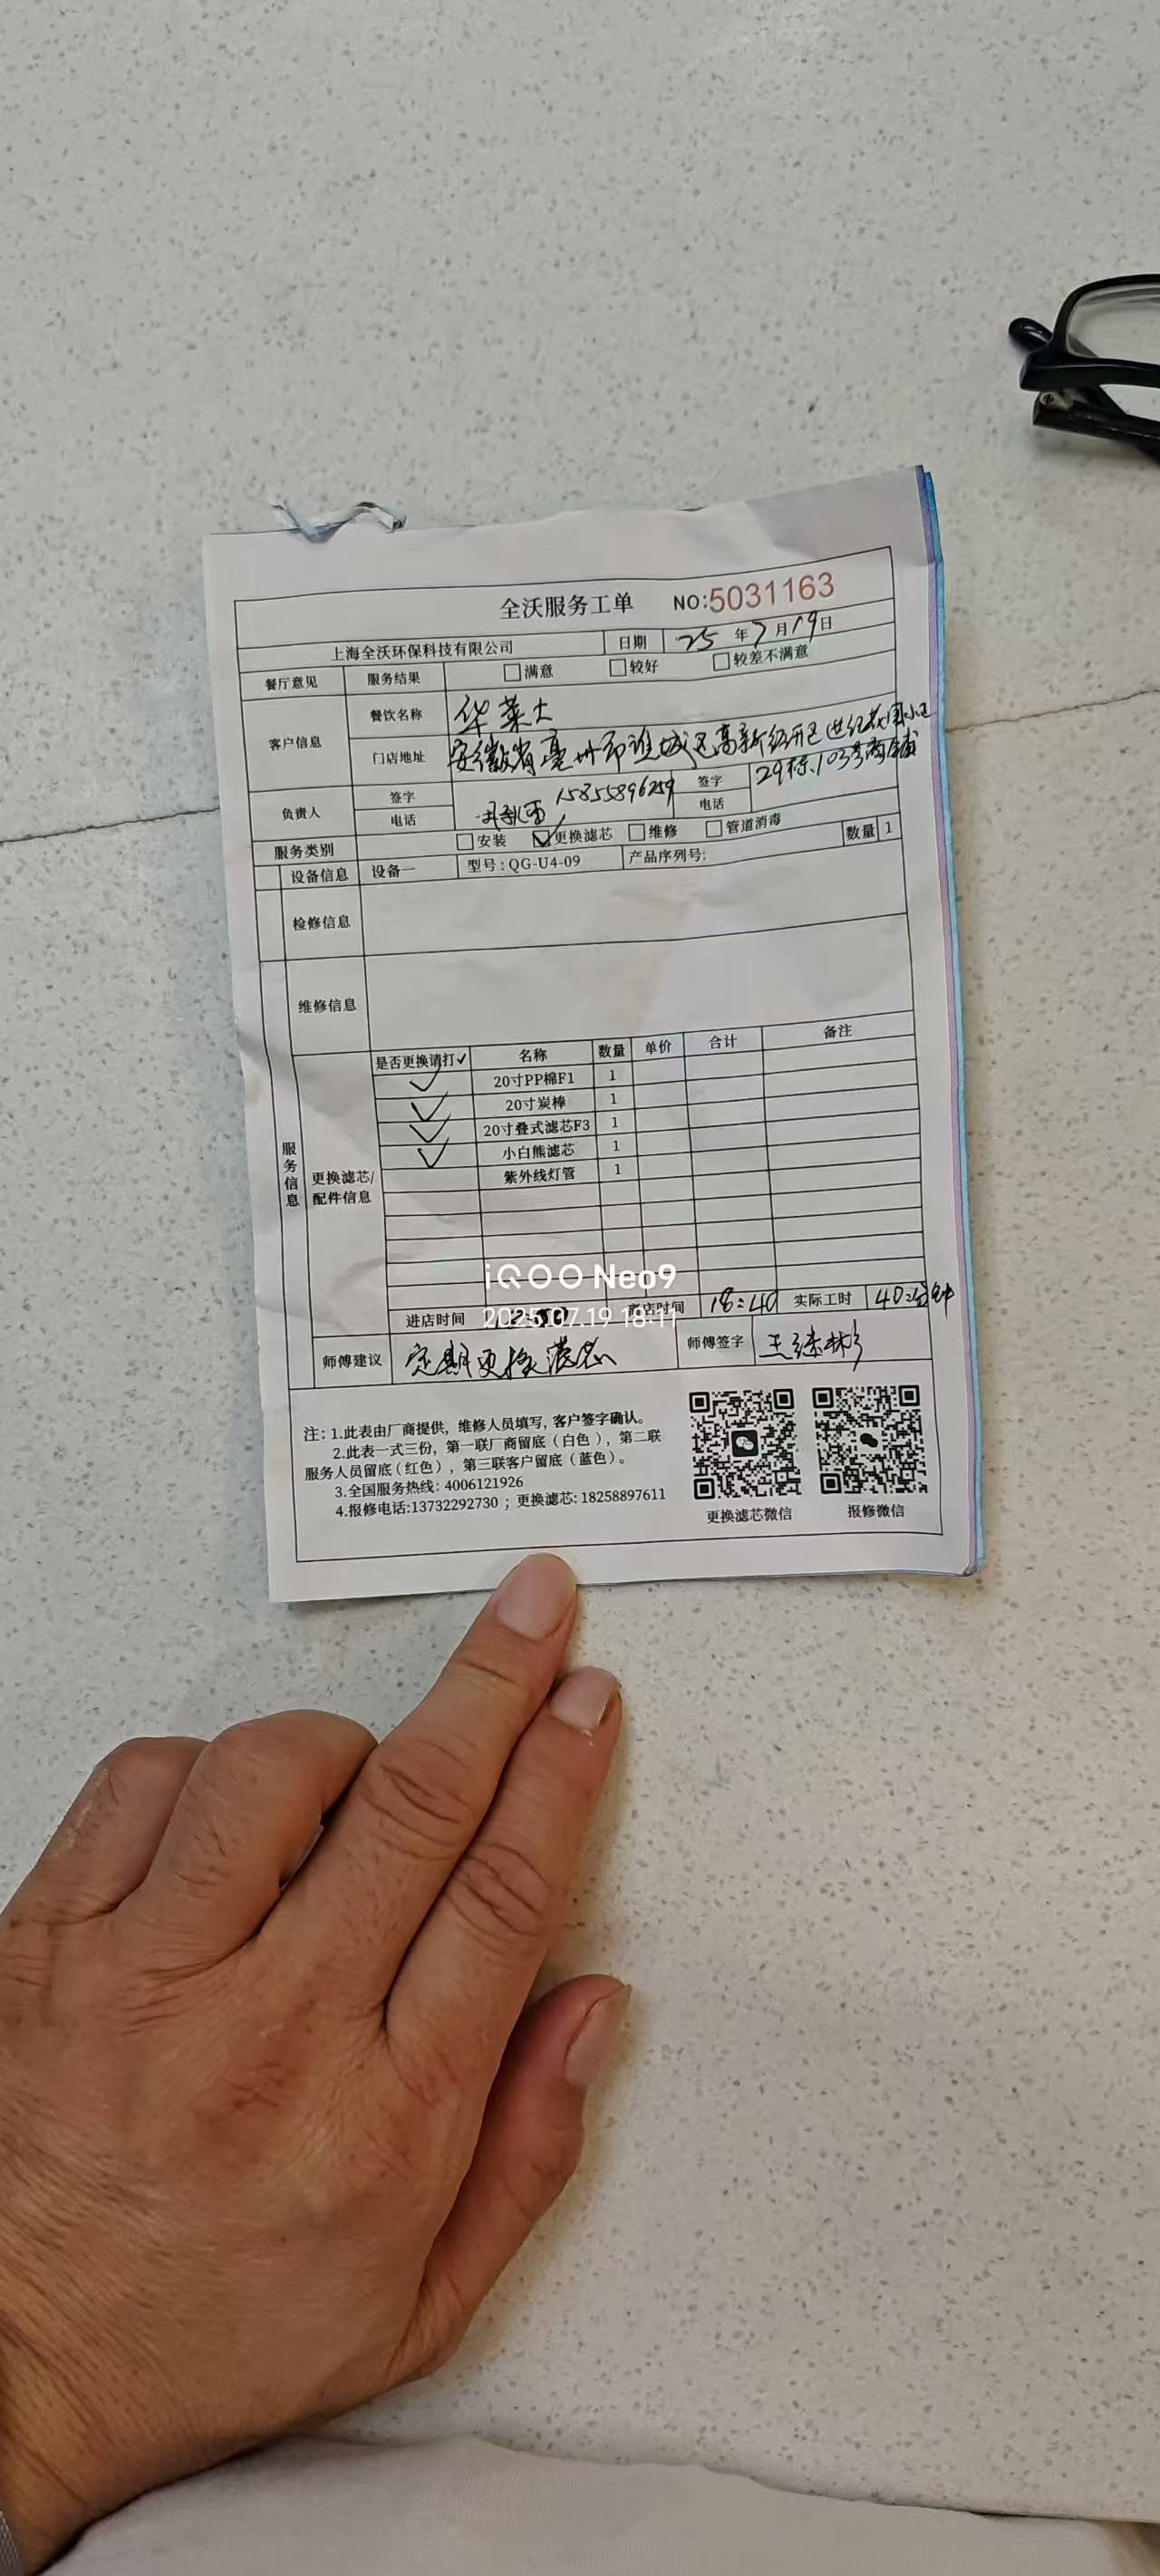 全沃服务工单 NO:5031163
上海全沃环保科技有限公司 日期 25年7月19日
餐厅意见 服务结果 □满意 □较好 □较差不满意
客户信息 餐饮名称 华莱士
门店地址 安徽省亳州市谯城区高新经开区世纪花园小区
29栋103号商铺
负责人 签字 15855896259 签字
电话 电话
服务类别 □安装 ☑更换滤芯 □维修 □管道消毒
设备信息 设备一 型号:QG-U4-09 产品序列号: 数量 1
检修信息
维修信息
服务信息
更换滤芯/配件信息
是否更换请打✓ 名称 数量 单价 合计 备注
✓ 20寸PP棉F1 1
✓ 20寸炭棒 1
✓ 20寸叠式滤芯F3 1
✓ 小白熊滤芯 1
紫外线灯管 1
iQOO Neo9
2025.07.19 18:11
进店时间 离店时间 18:40 实际工时 40分钟
师傅建议 定期更换滤芯 师傅签字
注: 1.此表由厂商提供, 维修人员填写, 客户签字确认。
2.此表一式三份, 第一联厂商留底(白色), 第二联
服务人员留底(红色), 第三联客户留底(蓝色)。
3.全国服务热线: 4006121926
4.报修电话:13732292730 ; 更换滤芯: 18258897611
更换滤芯微信 报修微信